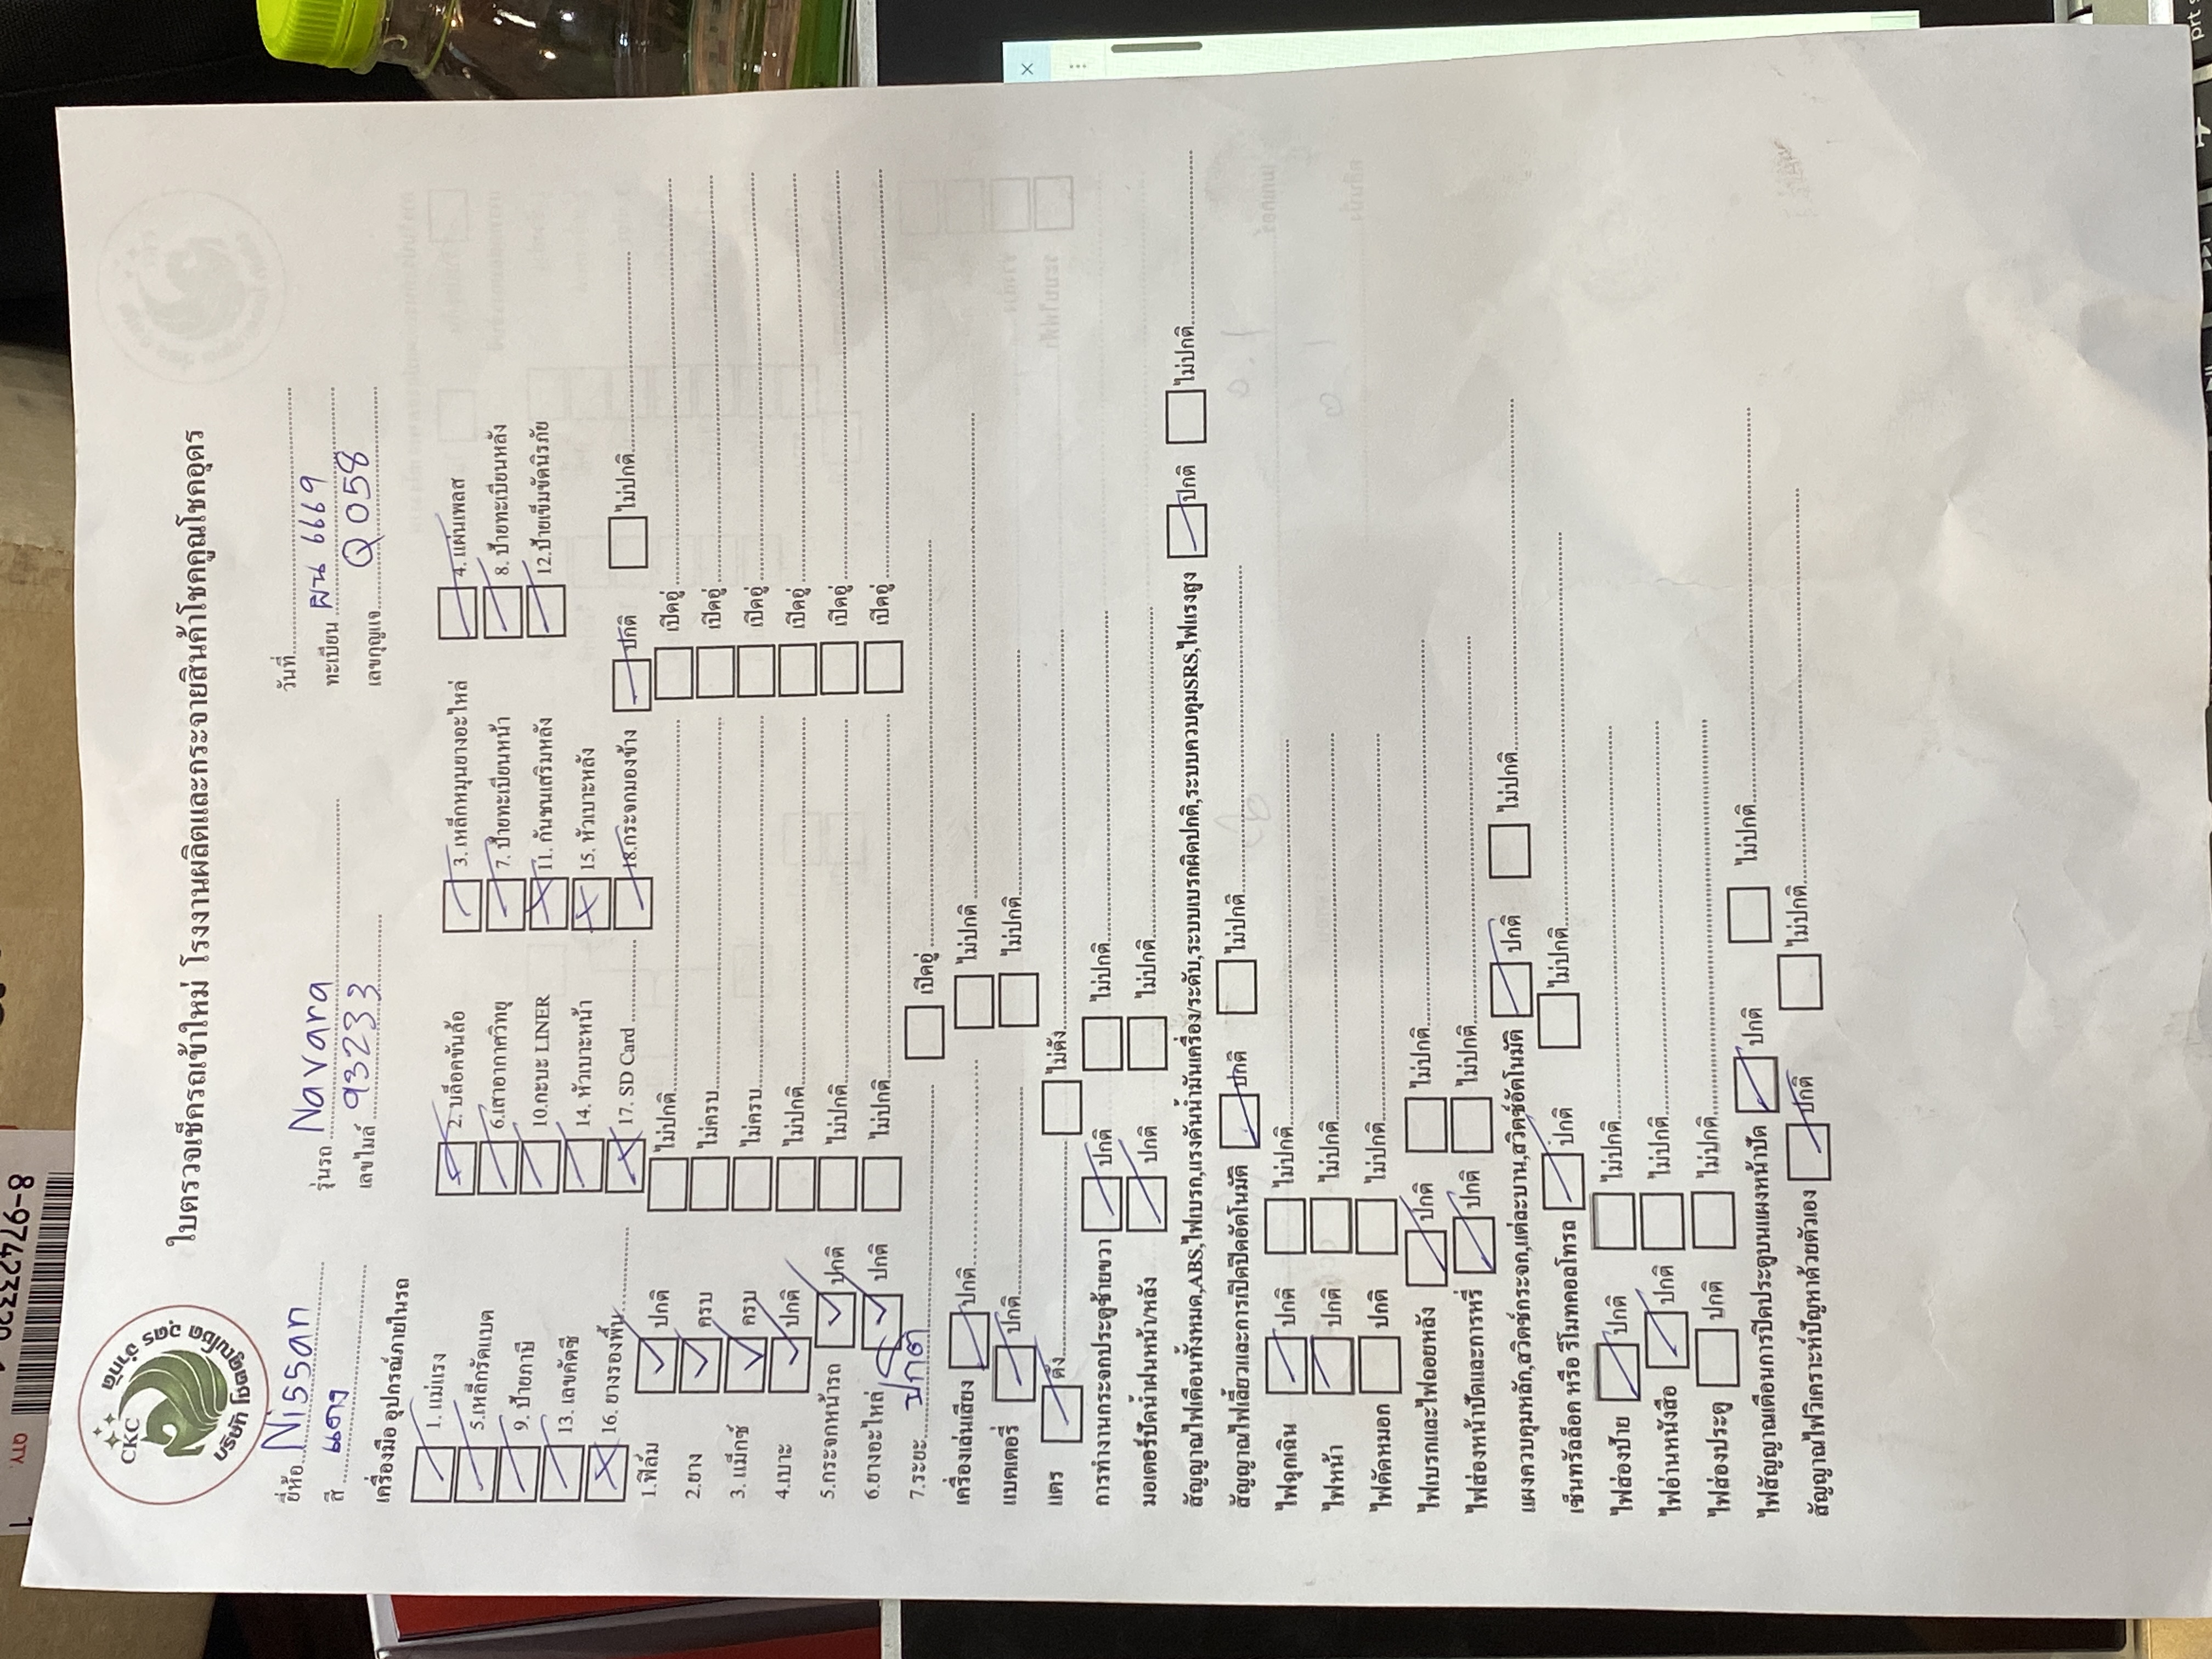 CKC
บริษัท โชคคูณโชค อุดร จำกัด
ใบตรวจเช็ครถเข้าใหม่ โรงงานผลิตและกระจายสินค้าโชคคูณโชคอุดร
วันที่
ยี่ห้อ Nissan รุ่นรถ Navara ทะเบียน ผน 6669
สี แดง เลขไมล์ 93233 เลขกุญแจ Q 058
เครื่องมือ อุปกรณ์ภายในรถ
1. แม่แรง 2. บล็อคขันล้อ 3. เหล็กหมุนยางอะไหล่ 4. แผ่นเพลส
5.เหล็กรัดแบต 6.เสาอากาศวิทยุ 7. ป้ายทะเบียนหน้า 8. ป้ายทะเบียนหลัง
9. ป้ายภาษี 10.กะบะ LINER 11. กันชนเสริมหลัง 12.ป้ายเข็มขัดนิรภัย
13. เลขคัตซี 14. หัวเบาะหน้า 15. หัวเบาะหลัง
16. ยางรองพื้น 17. SD Card 18.กระจกมองข้าง ปกติ ไม่ปกติ
1.ฟิล์ม ปกติ ไม่ปกติ เปิดอู่
2.ยาง ครบ ไม่ครบ เปิดอู่
3. แม็กซ์ ครบ ไม่ครบ เปิดอู่
4.เบาะ ปกติ ไม่ปกติ เปิดอู่
5.กระจกหน้ารถ ปกติ ไม่ปกติ เปิดอู่
6.ยางอะไหล่ ปกติ ไม่ปกติ เปิดอู่
7.ระยะ ปกติ เปิดอู่
เครื่องเล่นเสียง ปกติ ไม่ปกติ
แบตเตอรี่ ปกติ ไม่ปกติ
แตร ดัง ไม่ดัง
การทำงานกระจกประตูซ้ายขวา ปกติ ไม่ปกติ
มอเตอร์ปัดน้ำฝนหน้า/หลัง ปกติ ไม่ปกติ
สัญญาณไฟเตือนทั้งหมด,ABS,ไฟเบรก,แรงดันน้ำมันเครื่อง/ระดับ,ระบบเบรกผิดปกติ,ระบบควบคุมSRS,ไฟแรงสูง ปกติ ไม่ปกติ
สัญญาณไฟเลี้ยวและการเปิดปิดอัตโนมัติ ปกติ ไม่ปกติ
ไฟฉุกเฉิน ปกติ ไม่ปกติ
ไฟหน้า ปกติ ไม่ปกติ
ไฟตัดหมอก ปกติ ไม่ปกติ
ไฟเบรกและไฟถอยหลัง ปกติ ไม่ปกติ
ไฟส่องหน้าปัดและการหรี่ ปกติ ไม่ปกติ
แผงควบคุมหลัก,สวิตช์กระจก,แต่ละบาน,สวิตช์อัตโนมัติ ปกติ ไม่ปกติ
เซ็นทรัลล็อค หรือ รีโมทคอลโทรล ปกติ ไม่ปกติ
ไฟส่องป้าย ปกติ ไม่ปกติ
ไฟอ่านหนังสือ ปกติ ไม่ปกติ
ไฟส่องประตู ปกติ ไม่ปกติ
ไฟสัญญาณเตือนการปิดประตูบนแผงหน้าปัด ปกติ ไม่ปกติ
สัญญาณไฟวิเคราะห์ปัญหาด้วยตัวเอง ปกติ ไม่ปกติ
QTY. 1